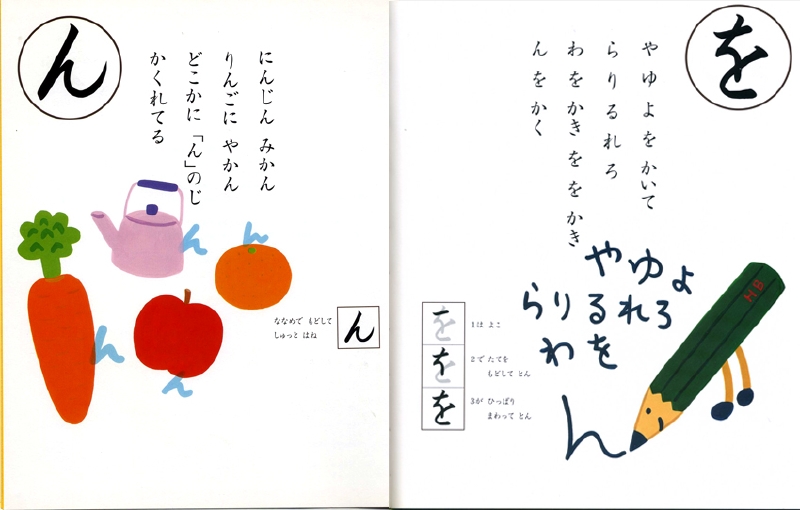 を
やゆよを かいて
らりるれろ
わを かき をを かき
んを かく
やゆよ
らりるれろ
わを
ん
HB
を
1は よこ
を
2で たてを
もどして とん
を
3が ひっぱり
まわって とん
ん
にんじん みかん
りんごに やかん
どこかに 「ん」のじ
かくれてる
ん
ん
ん
ん
ななめで もどして
しゅっと はね
ん